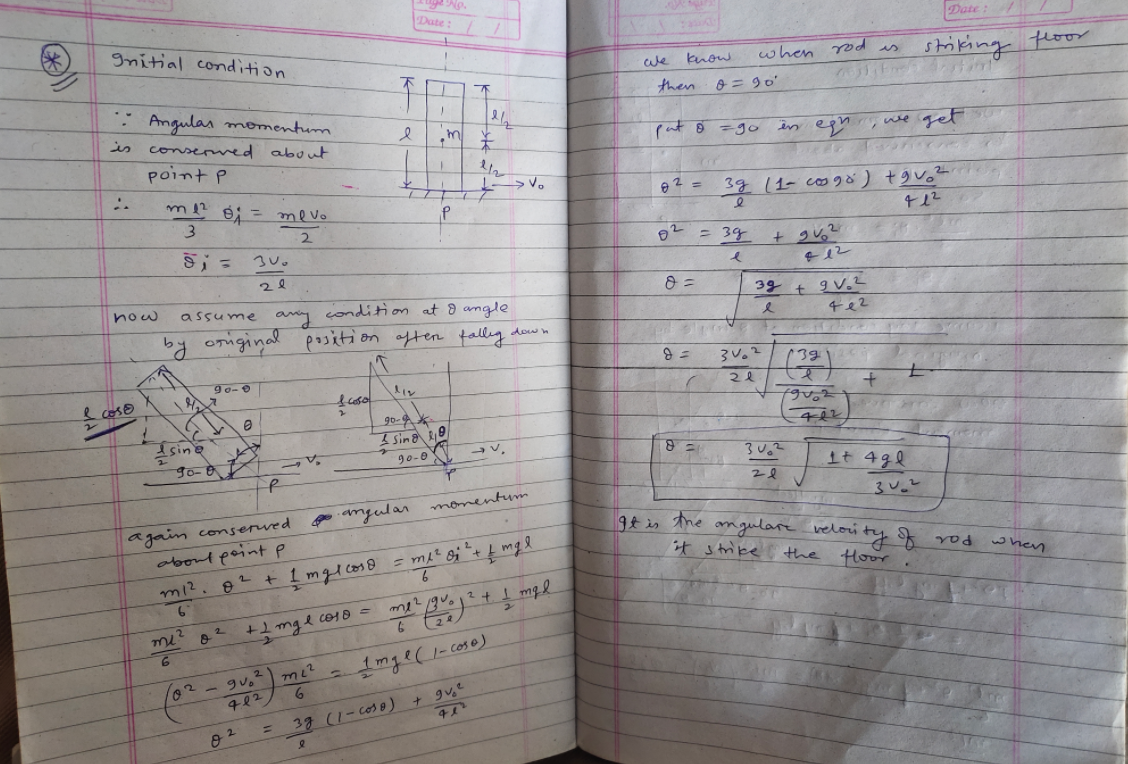 Page No.
Date: / /
Initial condition
∵ Angular momentum
is conserved about
point P
∴ ml²/3 θ̇i = mlv₀/2
θ̇i = 3v₀/2l
l
m
l/2
l/2
→ V₀
P
now assume any condition at θ angle
by original position after fallig down
l/2 cosθ
90-θ
l/2
θ
l/2 sinθ
90-θ
→ V₀
P
l/2 cosθ
l/2
90-θ
l/2 sinθ
θ
90-θ
→ V.
P
again conserved angular momentum
about point P
ml²/6 · θ² + 1/2 mgl cosθ = ml²/6 θi² + 1/2 mgl
ml²/6 θ² + 1/2 mgl cosθ = ml²/6 (9v₀/2l)² + 1/2 mgl
(θ² - 9v₀²/4l²) ml²/6 = 1/2 mgl (1-cosθ)
θ² = 3g/l (1-cosθ) + 9v₀²/4l²
Date: / /
we know when rod is striking floor
then θ = 90°
put θ = 90 in eqn, we get
θ² = 3g/l (1-cos90°) + 9v₀²/4l²
θ² = 3g/l + 9v₀²/4l²
θ = √(3g/l + 9v₀²/4l²)
θ = 3v₀²/2l √((3g/l)/(9v₀²/4l²) + 1)
θ = 3v₀²/2l √(1 + 4gl/3v₀²)
It is the angular velocity of rod when
it strike the floor.